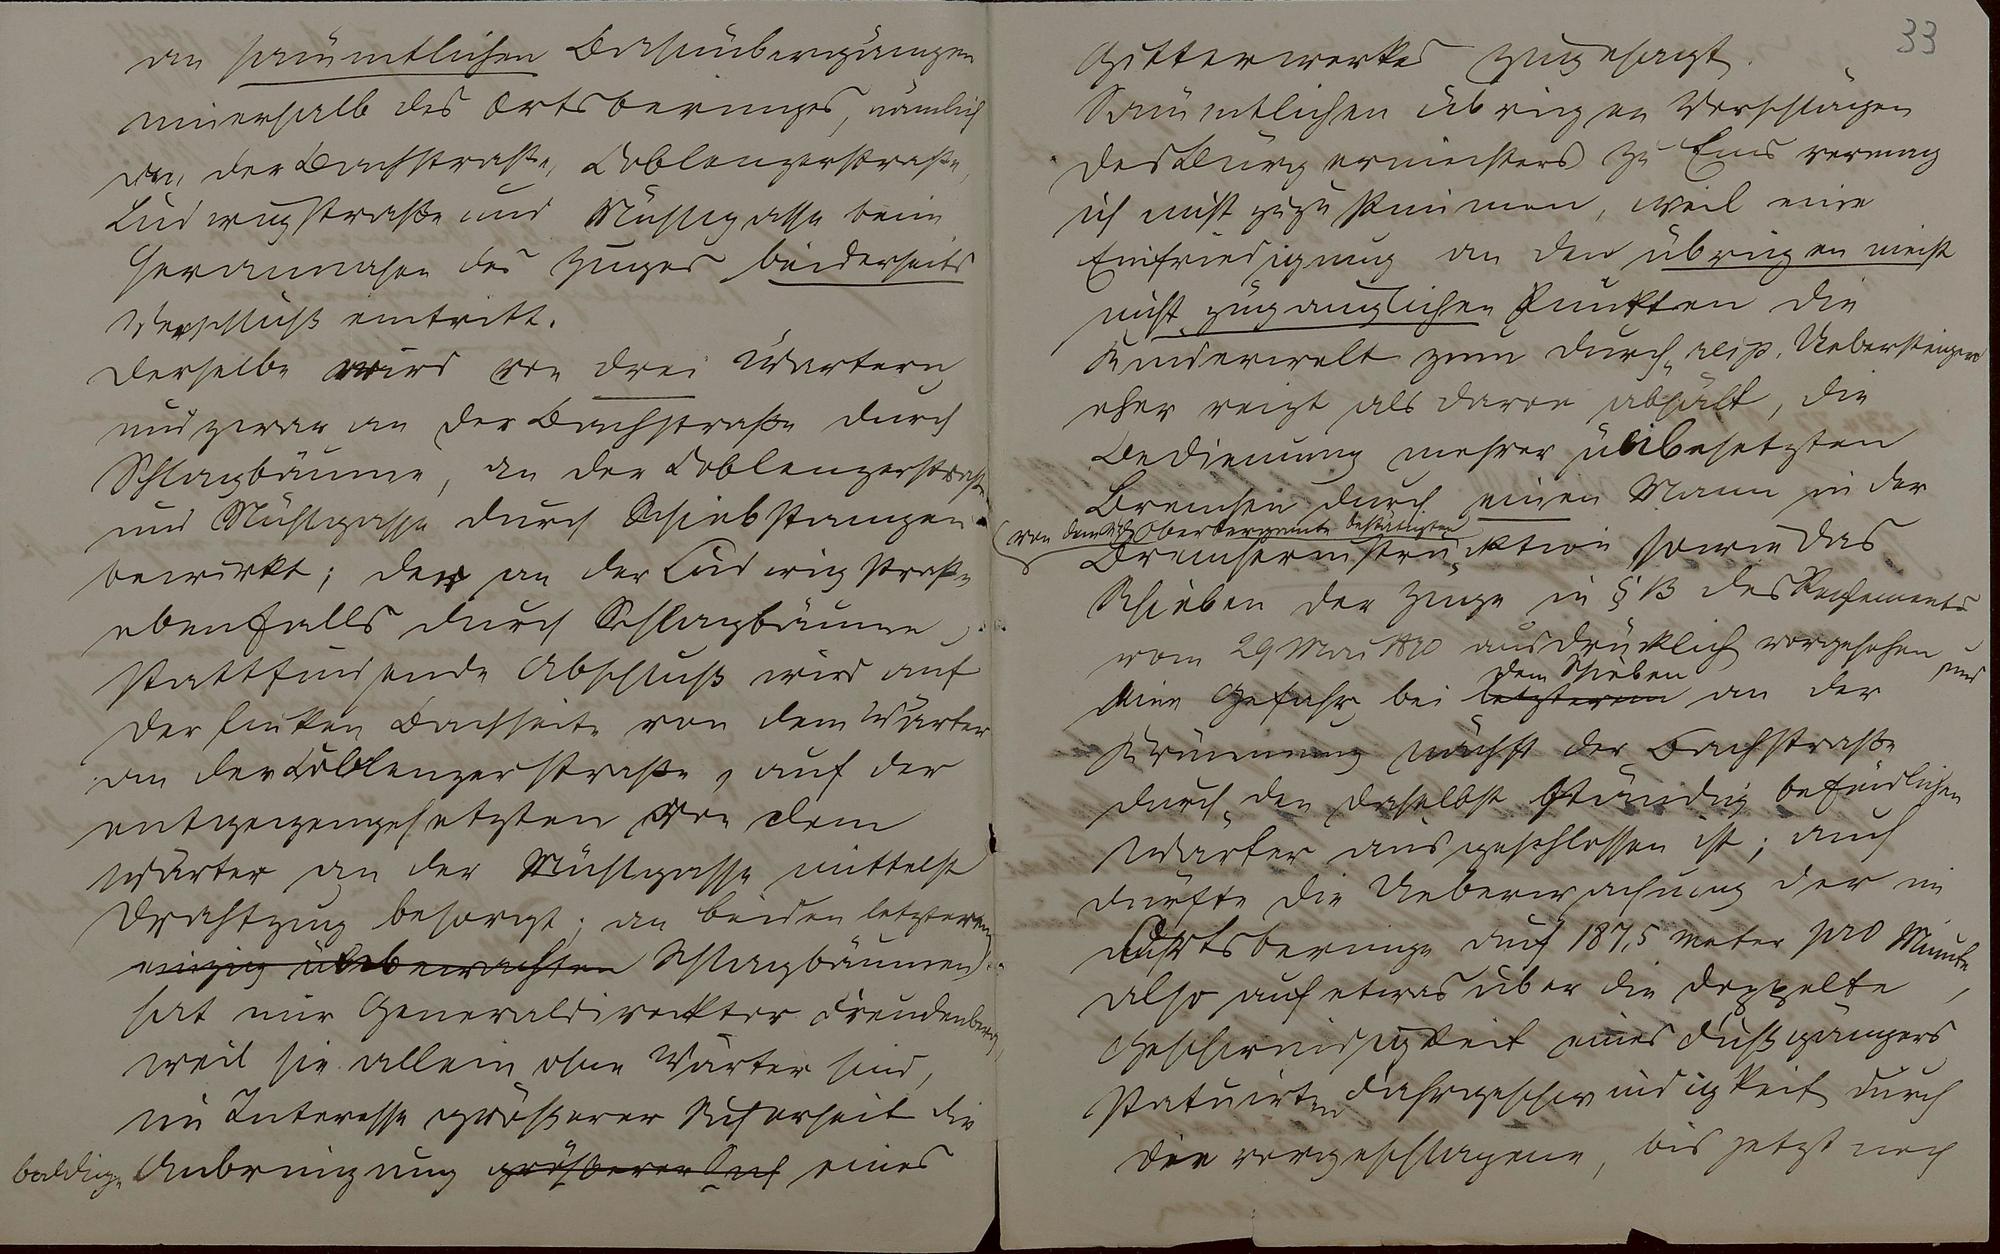 an sämmtlichen Bahnübergängen
innerhalb des Ortsberinges, nämlich
an der Bachstraße, Coblenzerstraße,
Ludwigstraße und Mühlgasse beim
Herannahen des Zuges beiderseits
Verschluß eintritt.
Derselbe wird von drei Wärtern
und zwar an der Bachstraße durch
Schlagbäume, an der Coblenzerstraße
und Mühlgasse durch Schiebstangen
bewirkt; der an der Ludwigstraße
ebenfalls durch Schlagbäume
stattfindende Abschluß wird auf
der linken Bachseite von dem Wärter
an der Coblenzerstraße, auf der
entgegengesetzten von dem
Wärter an der Mühlgasse mittelst
Drahtzug besorgt; an beiden letzteren
einzig überwachten Schlagbäumen
hat mir Generaldirecktor Freudenberg,
weil sie allein ohne Wärter sind,
im Interesse größerer Sicherheit die
baldige Anbringung größerer Sich eines
33
Gitterwerkes zugesagt.
Sämmtlichen übrigen Vorschlägen
des Bürgermeisters zu Ems vermag
ich nicht zuzustimmen, weil eine
Einfriedigung an den übrigen meist
nicht zugänglichen Punkten die
Kinderwelt zum Durch resp. Uebersteigen
eher reizt als davon abhält, die
Bedienung mehrer unbesetzten
Bremsen durch einen Mann in der
von dem Kgl Oberbergamte bestätigten
Bremserinstrucktion sowie das
Schieben der Züge in § 13 des Reglements
vom 29 Mai 1870 ausdrücklich vorgesehen und
eine Gefahr bei letzterem dem Schieben an der
Krümmung nächst der Bachstraße
durch den daselbst ständig befindlichen
Wärter ausgeschlossen ist; auch
dürfte die Ueberwachung der im
Ortsberinge auf 187,5 Meter pro Minute,
also auf etwas über die doppelte
Geschwindigkeit eines Fußgängers
statuirten Fahrgeschwindigkeit durch
die vorgeschlagene, bis jetzt noch